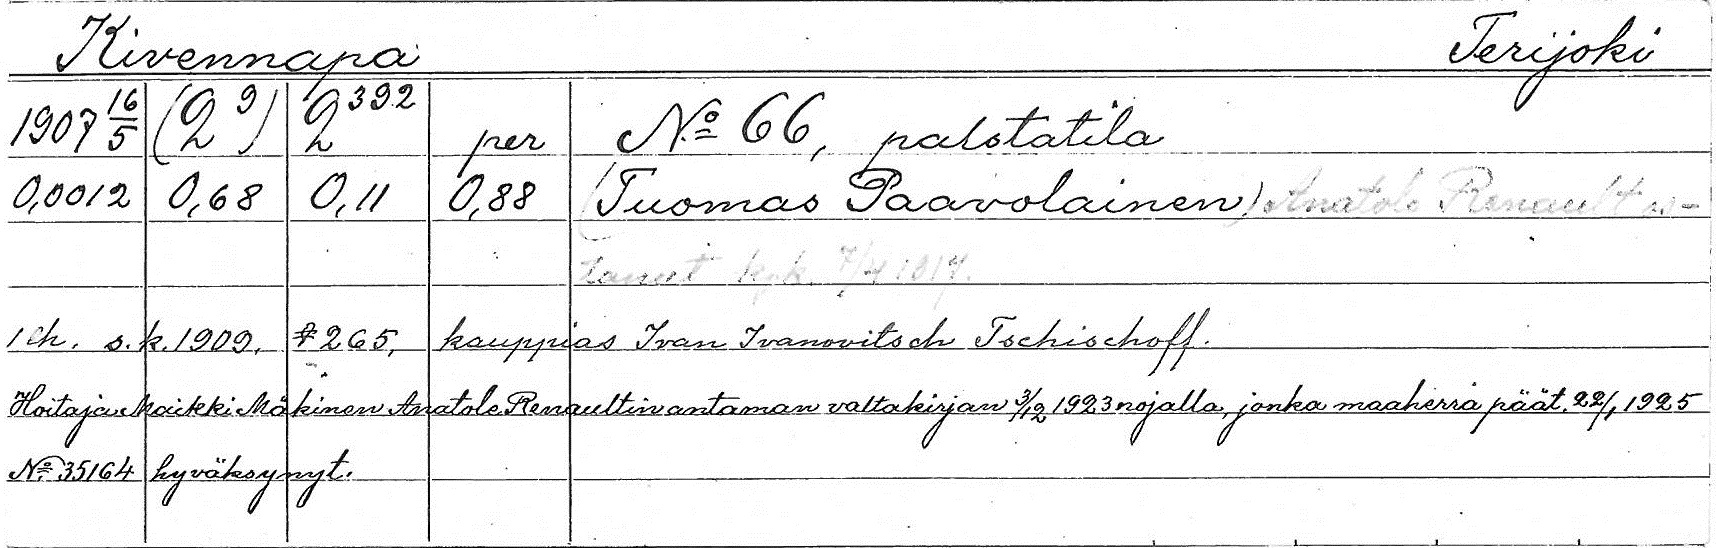 Kivennapa Terijoki
1907 16/5 (2⁹) 2³⁹² per № 66, palstatila
0,0012 0,68 0,11 0,88 (Tuomas Paavolainen) Anatole Renault os-
tanut kpk. 7/4 1917.
1 ch. s.k. 1909. # 265, kauppias Ivan Ivanovitsch Tschischoff.
Hoitaja Maikki Mäkinen Anatole Renaultin antaman valtakirjan 3/12 1923 nojalla, jonka maaherra päät. 22/1 1925
№ 35164 hyväksynyt.